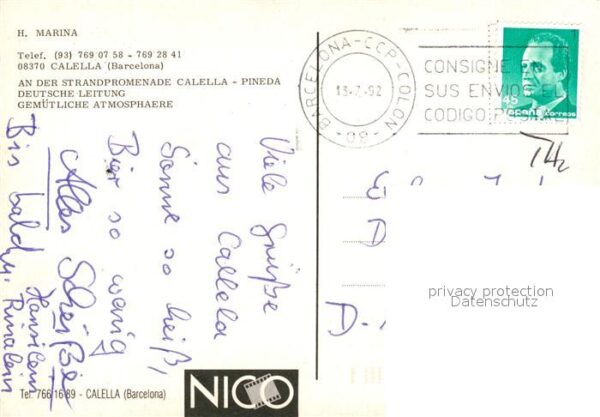 H. MARINA
Telef. (93) 769 07 58 - 769 28 41
08370 CALELLA (Barcelona)
AN DER STRANDPROMENADE CALELLA - PINEDA
DEUTSCHE LEITUNG
GEMÜTLICHE ATMOSPHAERE
BARCELONA-CCP-COLON
13-7-92
-08-
CONSIGNE EN
SUS ENVIOS EL
CODIGO POSTAL
45
España correos
Viele Grüße
aus Callela
Sonne so heiß,
Bier so wenig
Alles Scheiße
Bis bald
Hansilein
D
D.
privacy protection
Datenschutz
Tel. 766 16 89 - CALELLA (Barcelona)
NICO